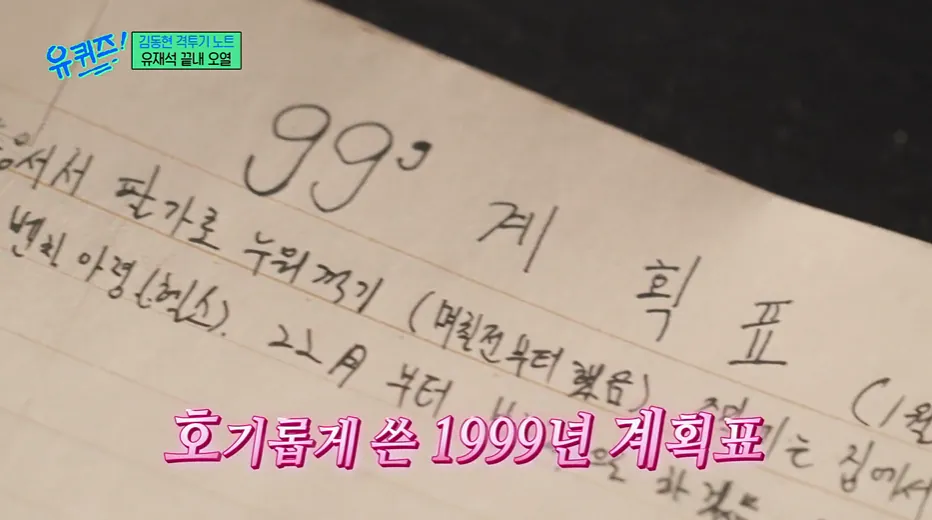 유퀴즈!
김동현 격투기 노트
유재석 끝내 오열
99'
계획표
(1월
서서 팔가로 누워 꺽기 (며칠전부터 했음) 는 집에서
벤치 아령(헬스). 22月 부터
호기롭게 쓴 1999년 계획표